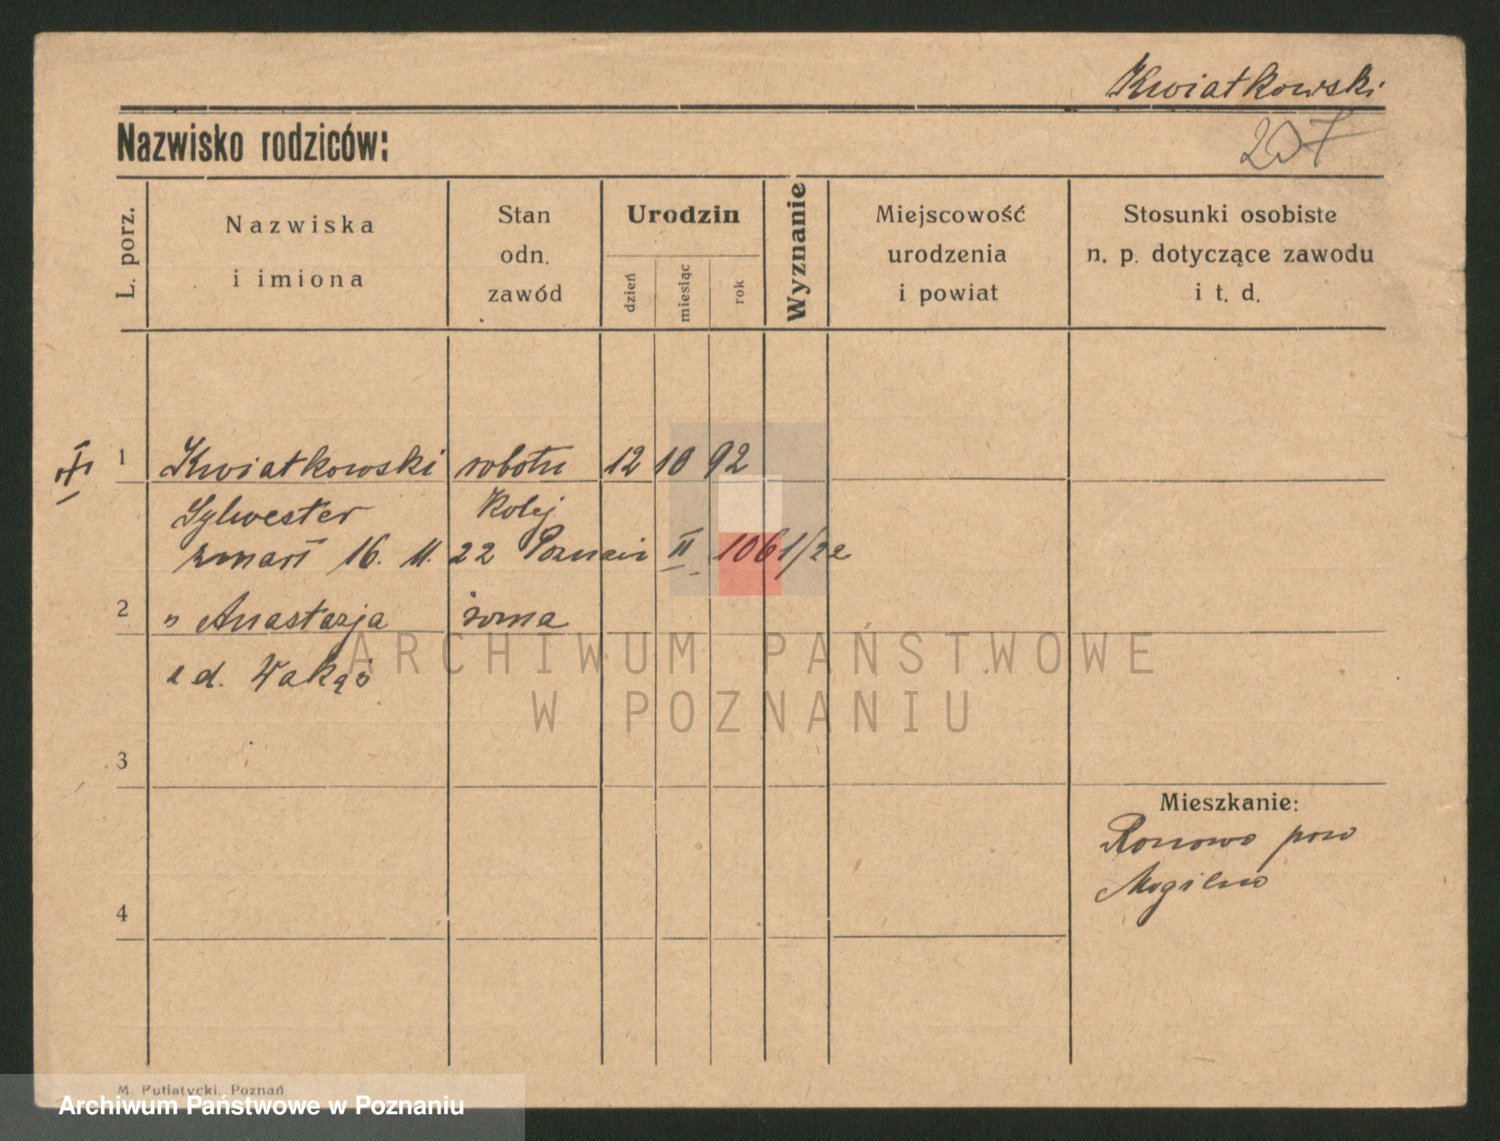 Kwiatkowski
Nazwisko rodziców:
207
L. porz.
Nazwiska
i imiona
Stan
odn.
zawód
Urodzin
dzień
miesiąc
rok
Wyznanie
Miejscowość
urodzenia
i powiat
Stosunki osobiste
n. p. dotyczące zawodu
i t. d.
1 Kwiatkowski robotn 12 10 92
Sylwester Kolej
zmarł 16. 11. 22 Poznań II 1061/22
2 " Anastazja żona
ARCHIWUM PAŃSTWOWE
W POZNANIU
3
Mieszkanie:
pow
Mogilno
4
M. Putiatycki, Poznań
Archiwum Państwowe w Poznaniu